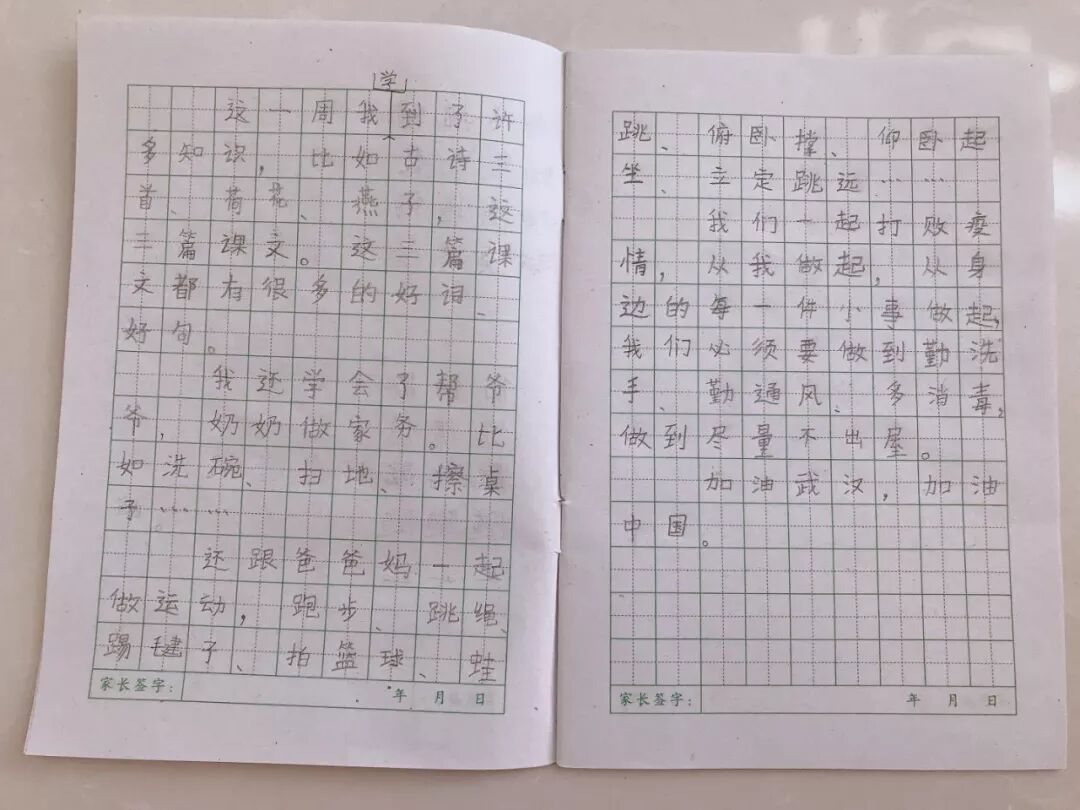 学
这一周我到了许
多知识，比如古诗三
首、荷花、燕子，这
三篇课文。这三篇课
文都有很多的好词、
好句。
我还学会了帮爷
爷，奶奶做家务。比
如洗碗、扫地、擦桌
子……。
还跟爸爸妈一起
做运动，跑步、跳绳、
踢毽子、拍篮球、蛙
家长签字：
年 月 日
跳、俯卧撑、仰卧起
坐、立定跳远……
我们一起打败疫
情，从我做起，从身
边的每一件小事做起，
我们必须要做到勤洗
手、勤通风、多消毒，
做到尽量不出屋。
加油武汉，加油
中国。
家长签字：
年 月 日